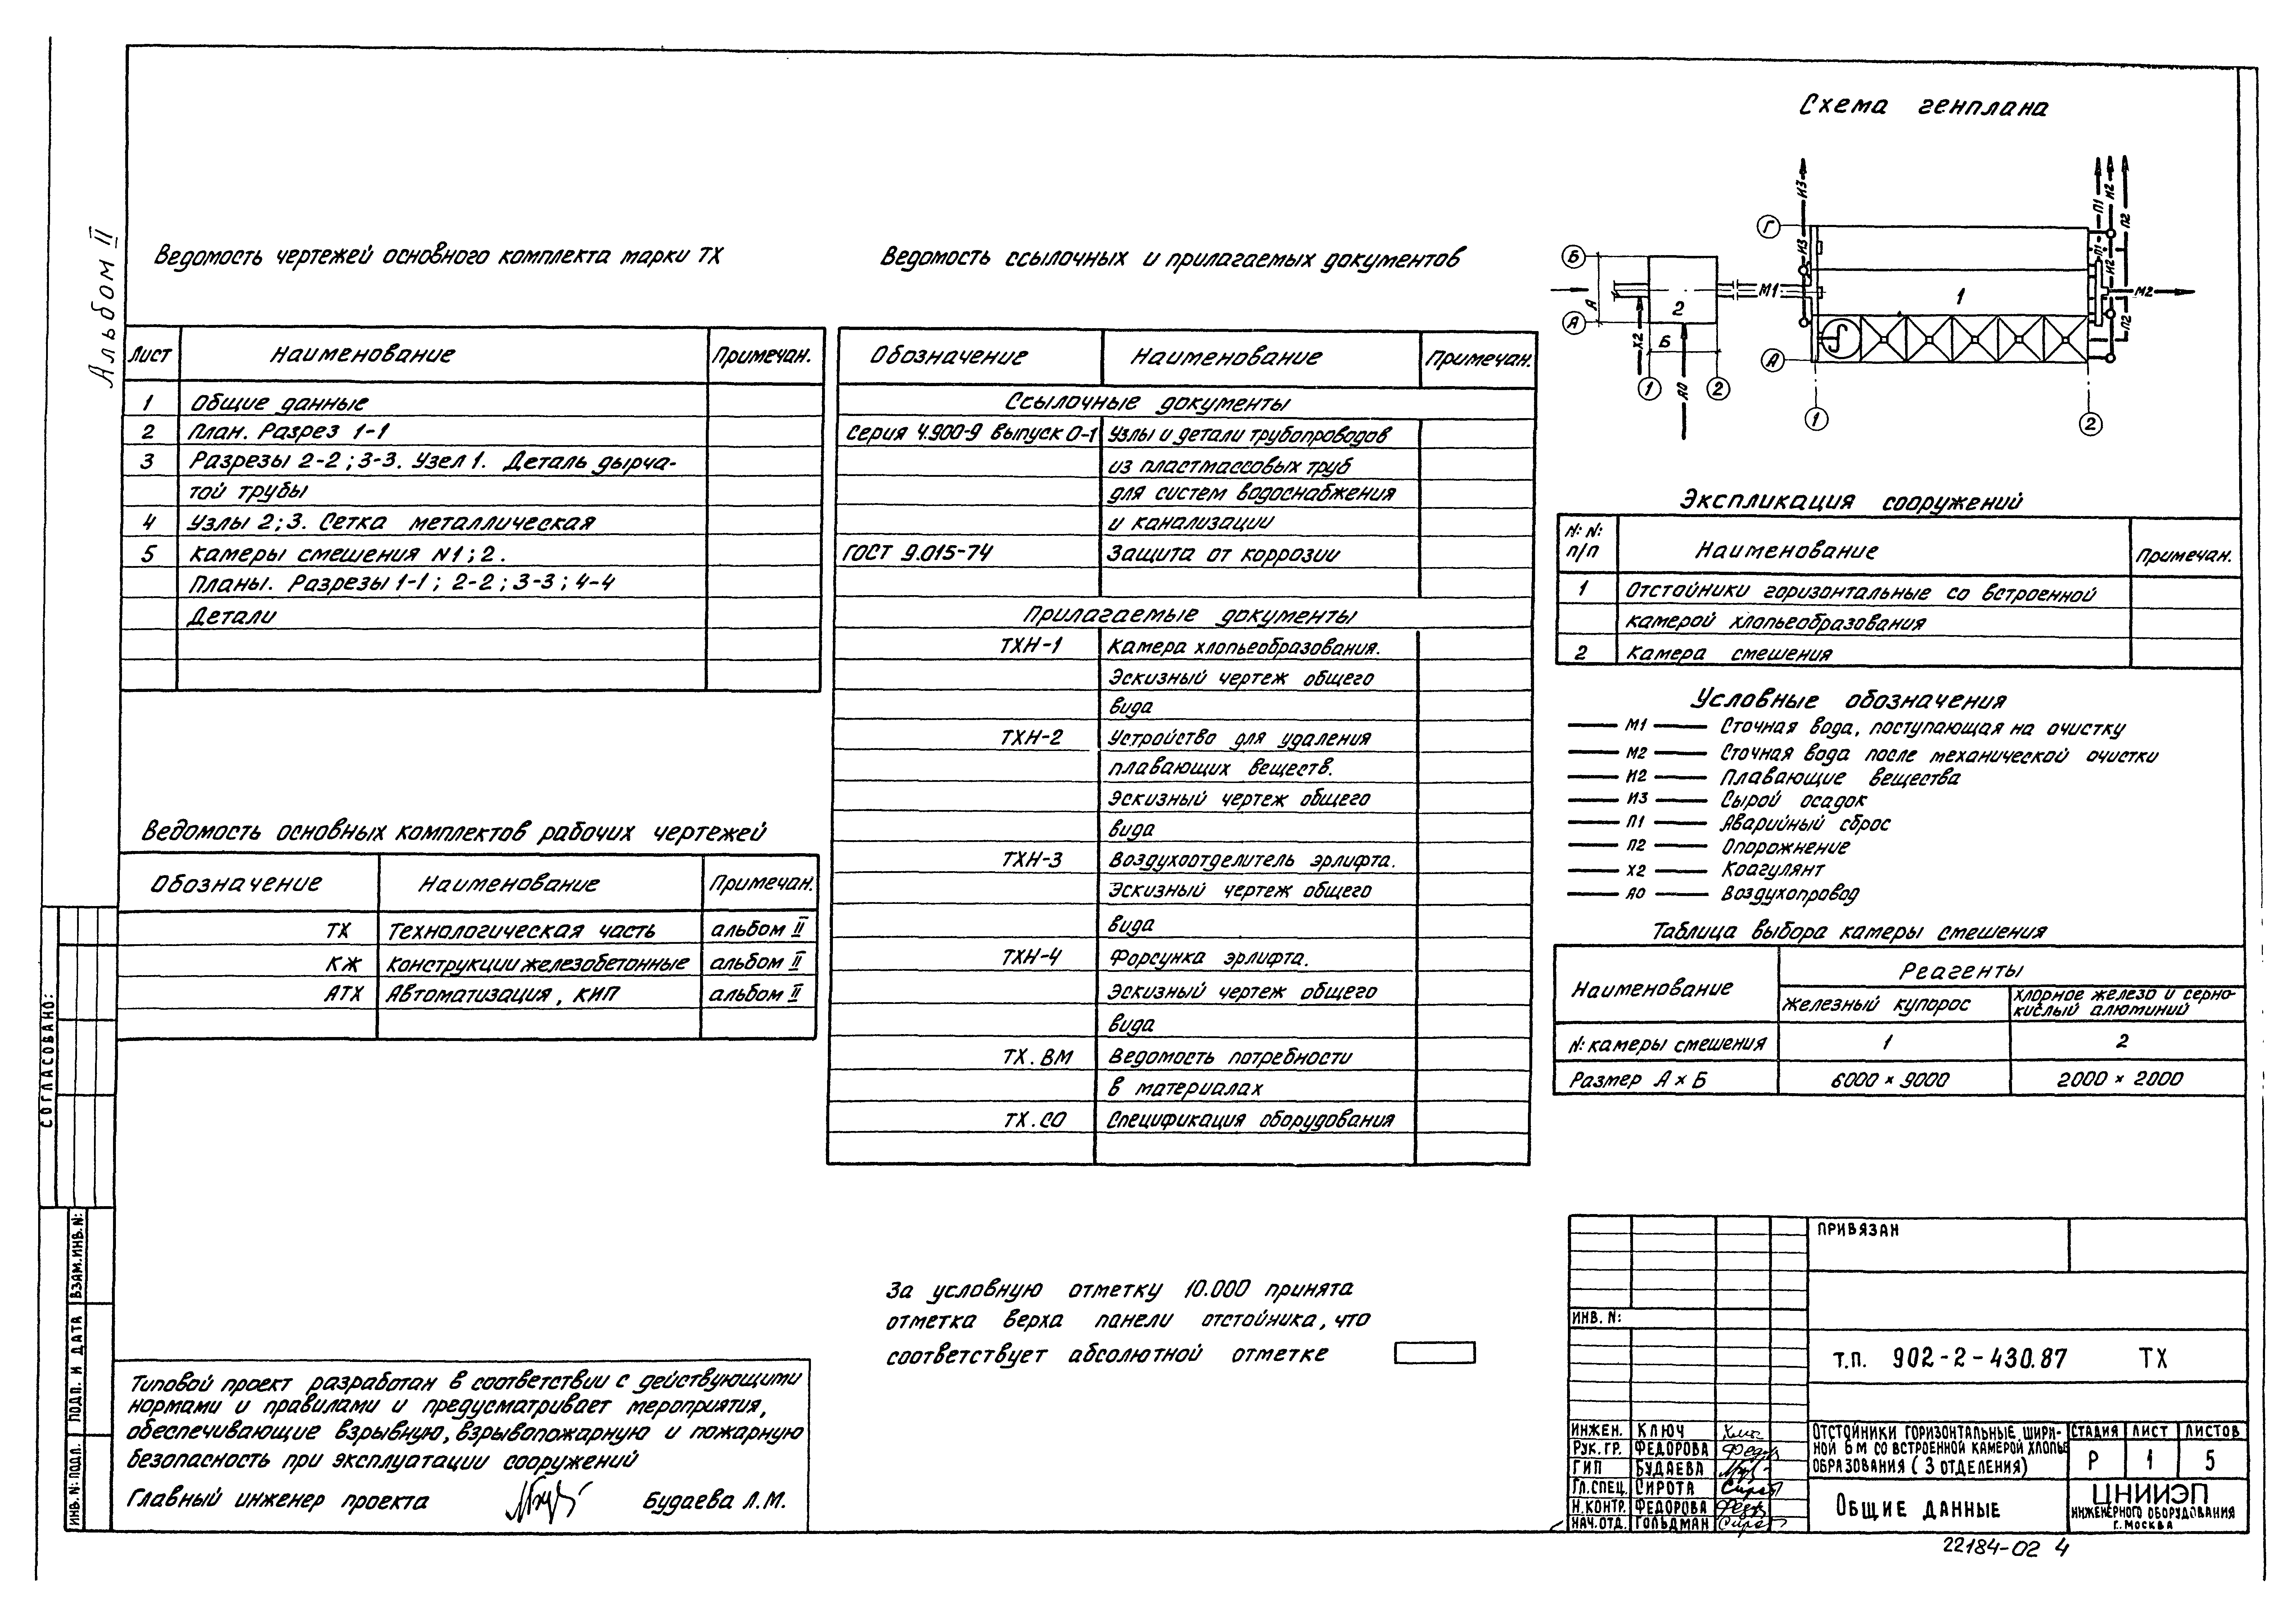 Альбом II
Ведомость чертежей основного комплекта марки ТХ
Лист Наименование Примечан.
1 Общие данные
2 План. Разрез 1-1
3 Разрезы 2-2; 3-3. Узел 1. Деталь дырча-
той трубы
4 Узлы 2; 3. Сетка металлическая
5 Камеры смешения N1; 2.
Планы. Разрезы 1-1; 2-2; 3-3; 4-4
Детали
Ведомость основных комплектов рабочих чертежей
Обозначение Наименование Примечан.
ТХ Технологическая часть альбом II
КЖ Конструкции железобетонные альбом II
АТХ Автоматизация, КИП альбом II
Типовой проект разработан в соответствии с действующими
нормами и правилами и предусматривает мероприятия,
обеспечивающие взрывную, взрывопожарную и пожарную
безопасность при эксплуатации сооружений
Главный инженер проекта Будаева Л.М.
СОГЛАСОВАНО:
ВЗАМ.ИНВ.N:
ПОДП. И ДАТА
ИНВ.N: ПОДЛ.
Ведомость ссылочных и прилагаемых документов
Обозначение Наименование Примечан.
Ссылочные документы
Серия 4.900-9 выпуск 0-1 Узлы и детали трубопроводов
из пластмассовых труб
для систем водоснабжения
и канализации
ГОСТ 9.015-74 Защита от коррозии
Прилагаемые документы
ТХН-1 Камера хлопьеобразования.
Эскизный чертеж общего
вида
ТХН-2 Устройство для удаления
плавающих веществ.
Эскизный чертеж общего
вида
ТХН-3 Воздухоотделитель эрлифта.
Эскизный чертеж общего
вида
ТХН-4 Форсунка эрлифта.
Эскизный чертеж общего
вида
ТХ.ВМ Ведомость потребности
в материалах
ТХ.СО Спецификация оборудования
За условную отметку 10.000 принята
отметка верха панели отстойника, что
соответствует абсолютной отметке
Схема генплана
И3
П1
И2
П2
Г
Б
А
А
2
Б
Х2
А0
1
2
М1
И3
П1
И2
1
М2
П2
А
1
2
Экспликация сооружений
N: N: п/п Наименование Примечан.
1 Отстойники горизонтальные со встроенной
камерой хлопьеобразования
2 Камера смешения
Условные обозначения
М1 Сточная вода, поступающая на очистку
М2 Сточная вода после механической очистки
И2 Плавающие вещества
И3 Сырой осадок
П1 Аварийный сброс
П2 Опорожнение
Х2 Коагулянт
А0 Воздухопровод
Таблица выбора камеры смешения
Наименование Реагенты
Железный купорос хлорное железо и серно-
кислый алюминий
N: камеры смешения 1 2
Размер А × Б 6000 × 9000 2000 × 2000
ПРИВЯЗАН
ИНВ. N:
Т.П. 902-2-430.87 ТХ
ИНЖЕН. КЛЮЧ
РУК. ГР. ФЕДОРОВА
ГИП БУДАЕВА
ГЛ.СПЕЦ. СИРОТА
Н.КОНТР. ФЕДОРОВА
НАЧ.ОТД. ГОЛЬДМАН
ОТСТОЙНИКИ ГОРИЗОНТАЛЬНЫЕ ШИРИ-
НОЙ 6 М СО ВСТРОЕННОЙ КАМЕРОЙ ХЛОПЬЕ
ОБРАЗОВАНИЯ (3 ОТДЕЛЕНИЯ)
СТАДИЯ ЛИСТ ЛИСТОВ
Р 1 5
ОБЩИЕ ДАННЫЕ
ЦНИИЭП
ИНЖЕНЕРНОГО ОБОРУДОВАНИЯ
Г. МОСКВА
22184-02 4